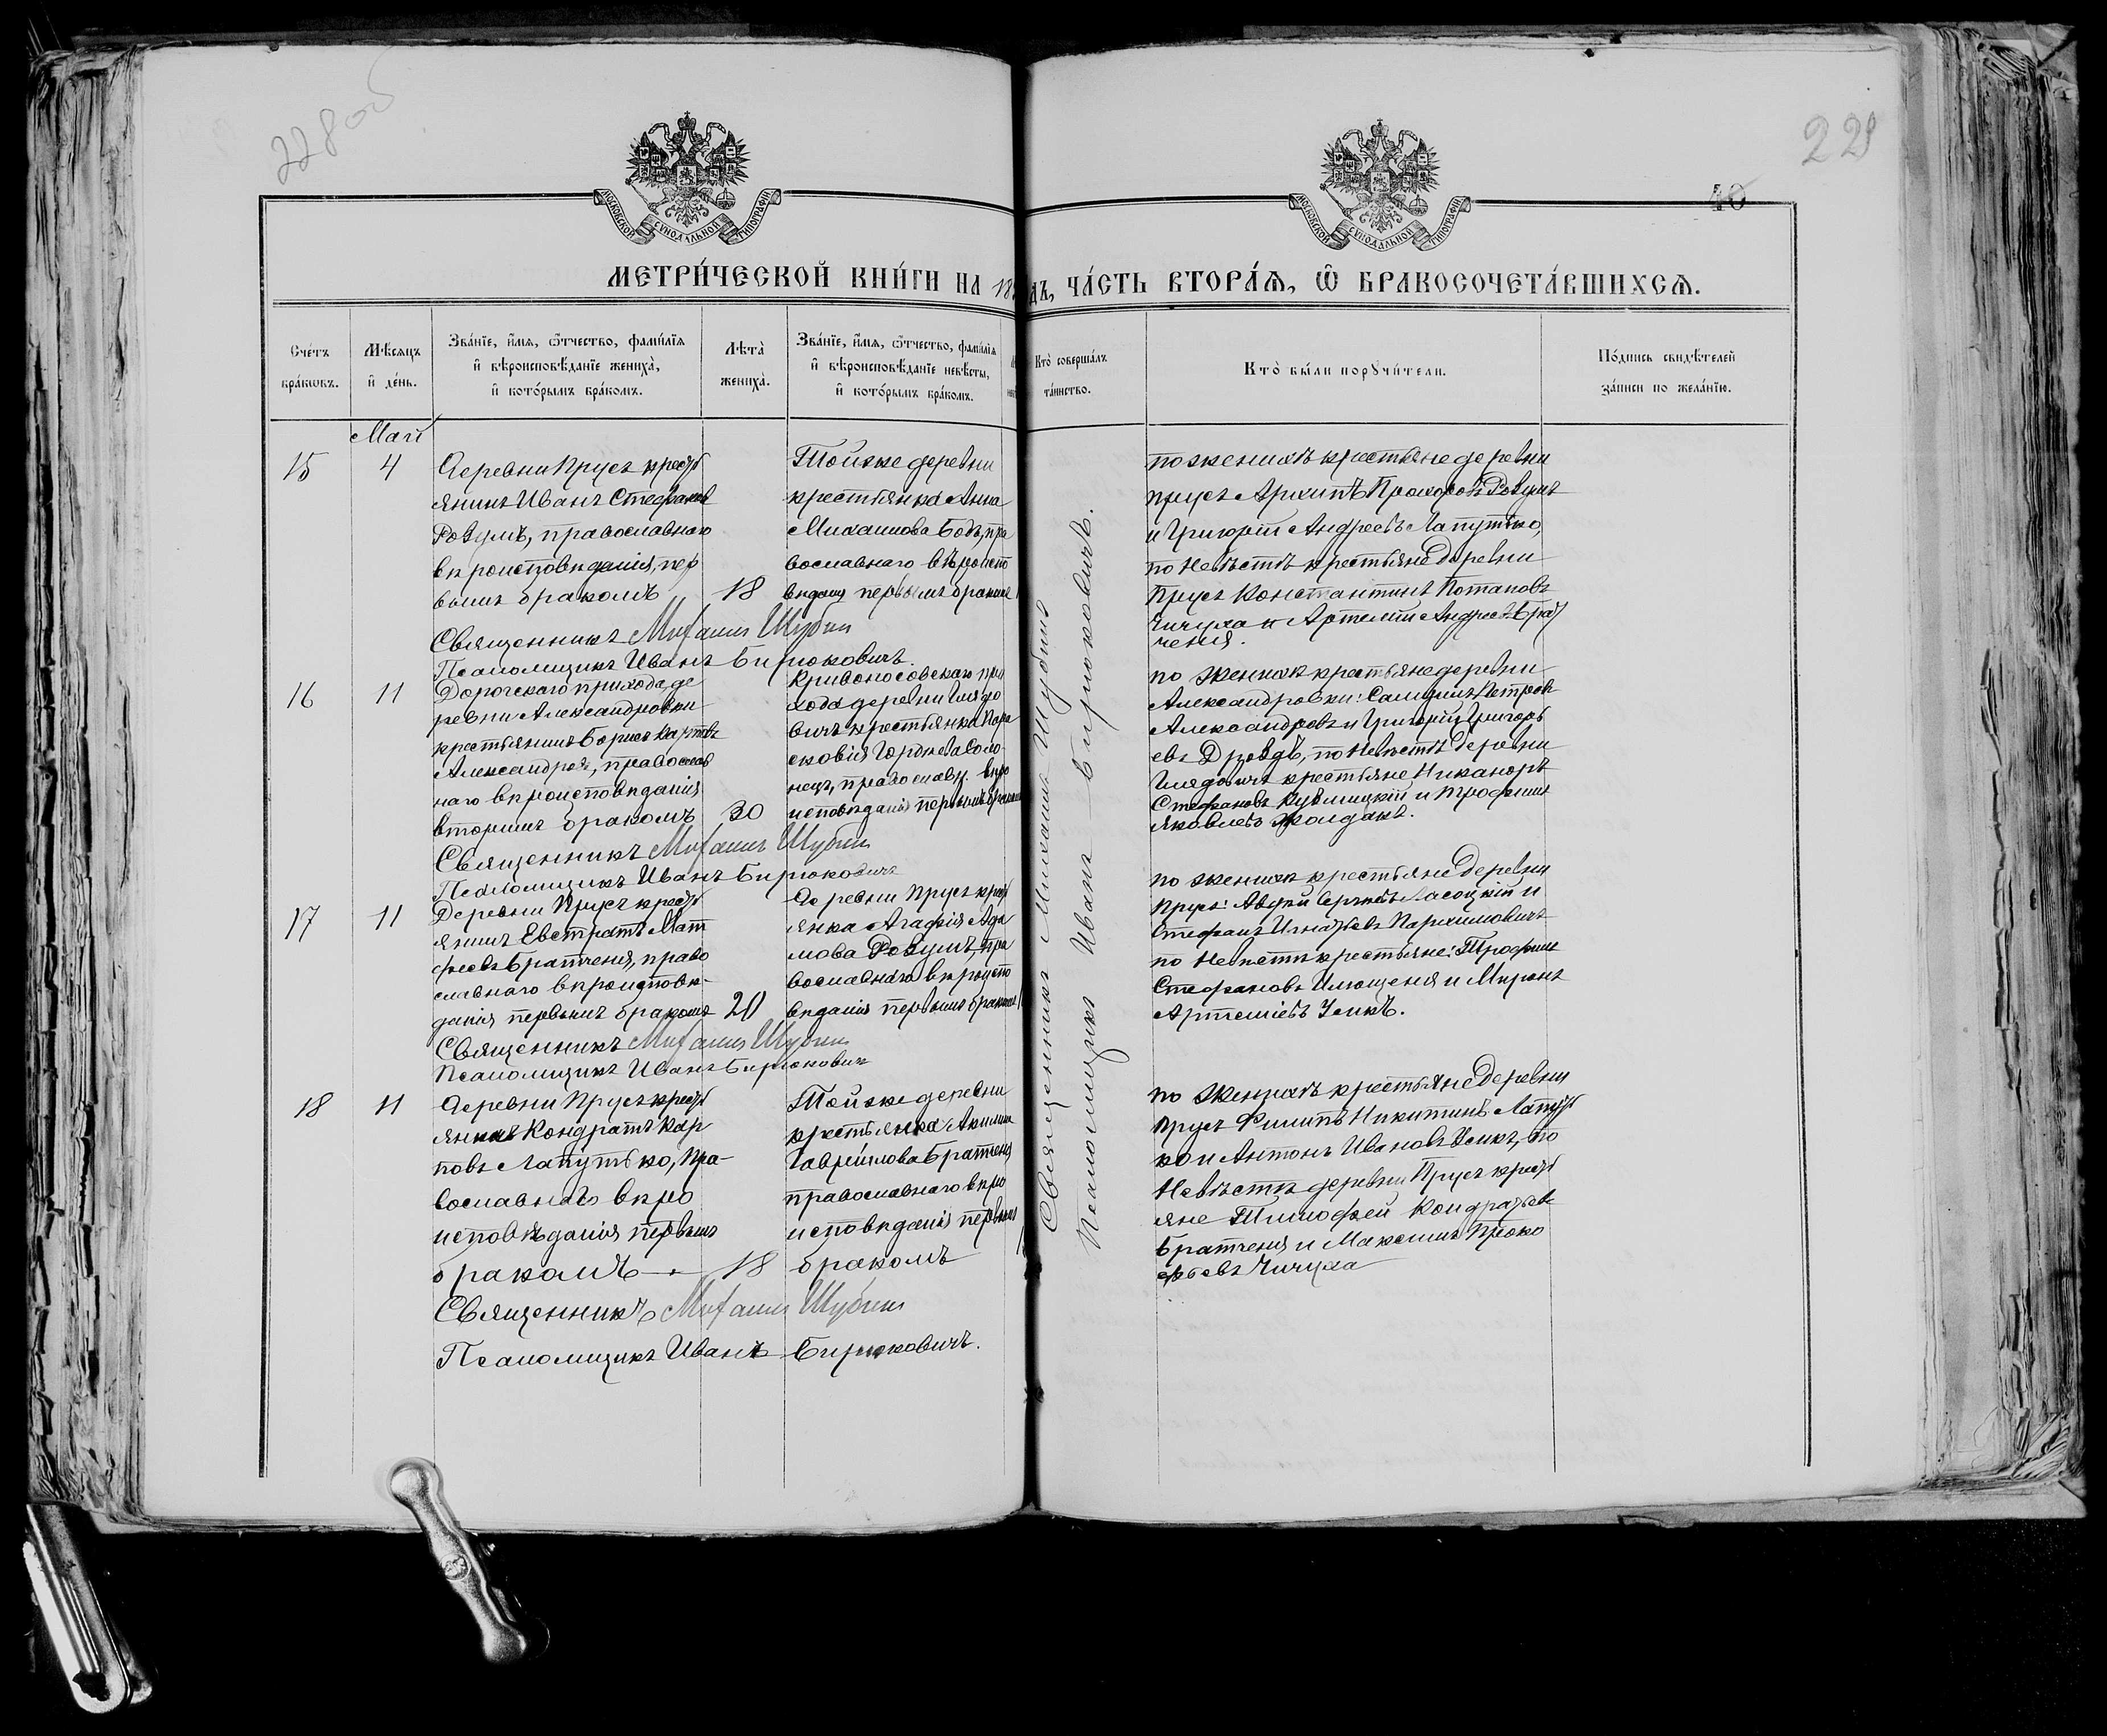 228 об
229
40
МОСКОВСКОЙ СУНОДАЛЬНОЙ ТИПОГРАФІИ
МОСКОВСКОЙ СУНОДАЛЬНОЙ ТИПОГРАФІИ
МЕТРИ́ЧЕСКОЙ КНИ́ГИ НА 18
ДЪ, ЧА́СТЬ ВТОРА́Ѧ, Ѽ БРАКОСОЧЕТА́ВШИХСѦ.
Сче́тъ
бра́кѡвъ.
Мѣ́сяцъ
и҆ де́нь.
Зва́нїе, и҆́мѧ, ѻ҆́тчество, фами́лїѧ
и҆ вѣроисповѣ́данїе жениха̀,
и҆ кото́рымъ бра́комъ.
Лѣта̀
жениха̀.
Зва́нїе, и҆́мѧ, ѻ҆́тчество, фами́лїѧ
и҆ вѣроисповѣ́данїе невѣ́сты,
и҆ кото́рымъ бра́комъ.
Кто̀ соверша́лъ
та́инство.
Кто̀ бы́ли порꙋчи́тели.
По́дпись свидѣ́телей
за́писи по жела́нїю.
Май
15
4
Деревни Прусъ крест
янинъ Иванъ Стефановъ
Розумъ, православнаго
вѣроисповѣданія, пер
вымъ бракомъ
18
Тойже деревни
крестьянка Анна
Михаилова Бодъ, пра
вославнаго вѣроиспо
вѣданія первымъ бракомъ
по женихѣ крестьяне деревни
Прусъ Архипъ Прохоровъ Розумъ
и Григорій Андреевъ Лапутько,
по невѣстѣ крестьяне деревни
Прусъ Константинъ Потаповъ
Чичуха и Артемій Андреевъ Брат
ченя.
Священникъ Михаилъ Шубинъ
Псаломщикъ Иванъ Бирюковичъ.
16
11
Дорогскаго прихода де
ревни Александровки
крестьянинъ Борисъ
Александровъ, православ
наго вѣроисповѣданія
вторымъ бракомъ
30
Кривоносовскаго при
хода деревни
вичъ крестьянка Пара
сковія
нецъ, православн. вѣро
исповѣданія первымъ бракомъ
по женихѣ крестьяне деревни
Александровки: Петровъ
Александровъ и Григорій Григорь
евъ Дроздъ, по невѣстѣ деревни
крестьяне Никаноръ
Стефановъ Кузмицкій и Трофимъ
Яковлевъ Жолдакъ.
Священникъ Михаилъ Шубинъ
Псаломщикъ Иванъ Бирюковичъ
17
11
Деревни Прусъ крест
янинъ Евстратъ Мат
феевъ Братченя, право
славнаго вѣроисповѣ-
данія первымъ бракомъ
20
Деревни Прусъ крест
янка Агафія Ада
мова Розумъ, пра
вославнаго вѣроиспо
вѣданія первымъ бракомъ
по женихѣ крестьяне деревни
Прусъ: Авдѣй Сергѣевъ Ласоцкій и
Стефанъ Игнатьевъ Пархимовичъ
по невѣстѣ крестьяне: Трофимъ
Стефановъ Илющеня и Миронъ
Артеміевъ Усикъ.
Священникъ Михаилъ Шубинъ
Псаломщикъ Иванъ Бирюковичъ
18
11
Деревни Прусъ крест
янинъ Кондратъ Кар
повъ Лапутько, пра-
вославнаго вѣро
исповѣданія первымъ
бракомъ
18
Тойже деревни
крестьянка Акилина
Гавріилова Братченя
православнаго вѣро
исповѣданія первымъ
бракомъ
по женихѣ крестьяне деревни
Прусъ Филипъ Никитинъ Лапуть
ко и Антонъ Ивановъ Усикъ, по
невѣстѣ деревни Прусъ крест
яне Тимофей Кондратьевъ
Братченя и Максимъ Проко
фьевъ Чичуха
Священникъ Михаилъ Шубинъ
Псаломщикъ Иванъ Бирюковичъ.
Священникъ Михаилъ Шубинъ
Псаломщикъ Иванъ Бирюковичъ.